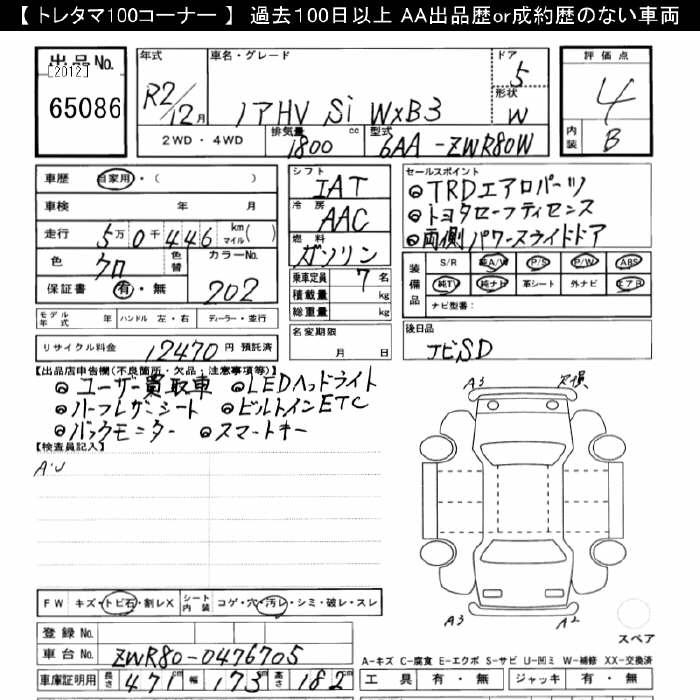 【 トレタマ100コーナー 】 過去100日以上 AA出品歴or成約歴のない車両
出品No.
[2012]
65086
年式
R2/12月
車名・グレード
ノアHV Si W×B3
ドア
5
形状
W
評価点
4
内装
B
2WD・4WD
排気量
1800 cc
型式
6AA-ZWR80W
車歴 自家用・( )
車検 年 月
走行 5万0千446 km マイル( )
色 クロ 色替
カラーNo.
202
保証書 有・無
シフト
IAT
冷房
AAC
燃料
ガソリン
乗車定員 7 名
積載量 kg
総重量 kg
セールスポイント
◎TRDエアロパーツ
◎トヨタセーフティセンス
◎両側パワースライドドア
装備品
S/R 純A/W P/S P/W ABS
純TV 純ナビ 革シート 外ナビ エアB
ナビ型番:
モデル年式 年 ハンドル 左・右 ディーラー・並行
リサイクル料金 12470 円 預託済
名変期限
月 日
後日品
ナビSD
【出品店申告欄(不良箇所・欠品・注意事項等)】
◎ユーザー買取車 ◎LEDヘッドライト
◎ハーフレザーシート ◎ビルトインETC
◎バックモニター ◎スマートキー
【検査員記入】
A・U
A3 欠損
A3 A2
スペア
FW キズ・トビ石・割レX
シート内装 コゲ・穴・汚レ・シミ・破レ・スレ
登録No.
車台No. ZWR80-0476705
車庫証明用 長さ 471 cm 幅 173 cm 高さ 182 cm
A-キズ C-腐食 E-エクボ S-サビ U-凹ミ W-補修 XX-交換済
工具 有・無 ジャッキ 有・無